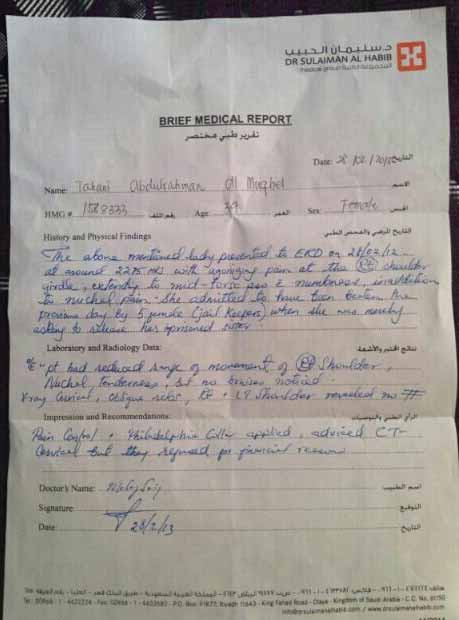 د. سليمان الحبيب
DR SULAIMAN AL HABIB
medical group المجموعة الطبية
BRIEF MEDICAL REPORT
تقرير طبي مختصر
Date: 28 /02 / التاريخ
Name: Tahani Abdulrahman Al Mughel الاسم
HMG # 1588333 رقم الملف Age 37 العمر Sex Female الجنس
History and Physical Findings التاريخ المرضي والفحص الطبي
The above mentioned lady presented to on 28/02/12
at around 2275 HRS with agonizing pain at the Rt shoulder
girdle, extending to mid-torso numbness, in addition
to nuchal pain. She admitted to have been beaten the
previous day by 5 female (jail keepers) when she was merely
asking to release her imprisoned sister.
Laboratory and Radiology Data: نتائج المختبر والأشعة:
pt had reduced range of movement of Rt Shoulder,
Nuchal tenderness, but no bruises noticed.
X-ray Cervical, oblique Rt + LT Shoulder revealed no #
Impression and Recommendations: الرأي الطبي والتوصيات:
Pain Control + Philadelphia Collar applied, advised CT-
Cervical but they refused for financial reasons
Doctor's Name: اسم الطبيب:
Signature: التوقيع
Date: 28/2/13 التاريخ